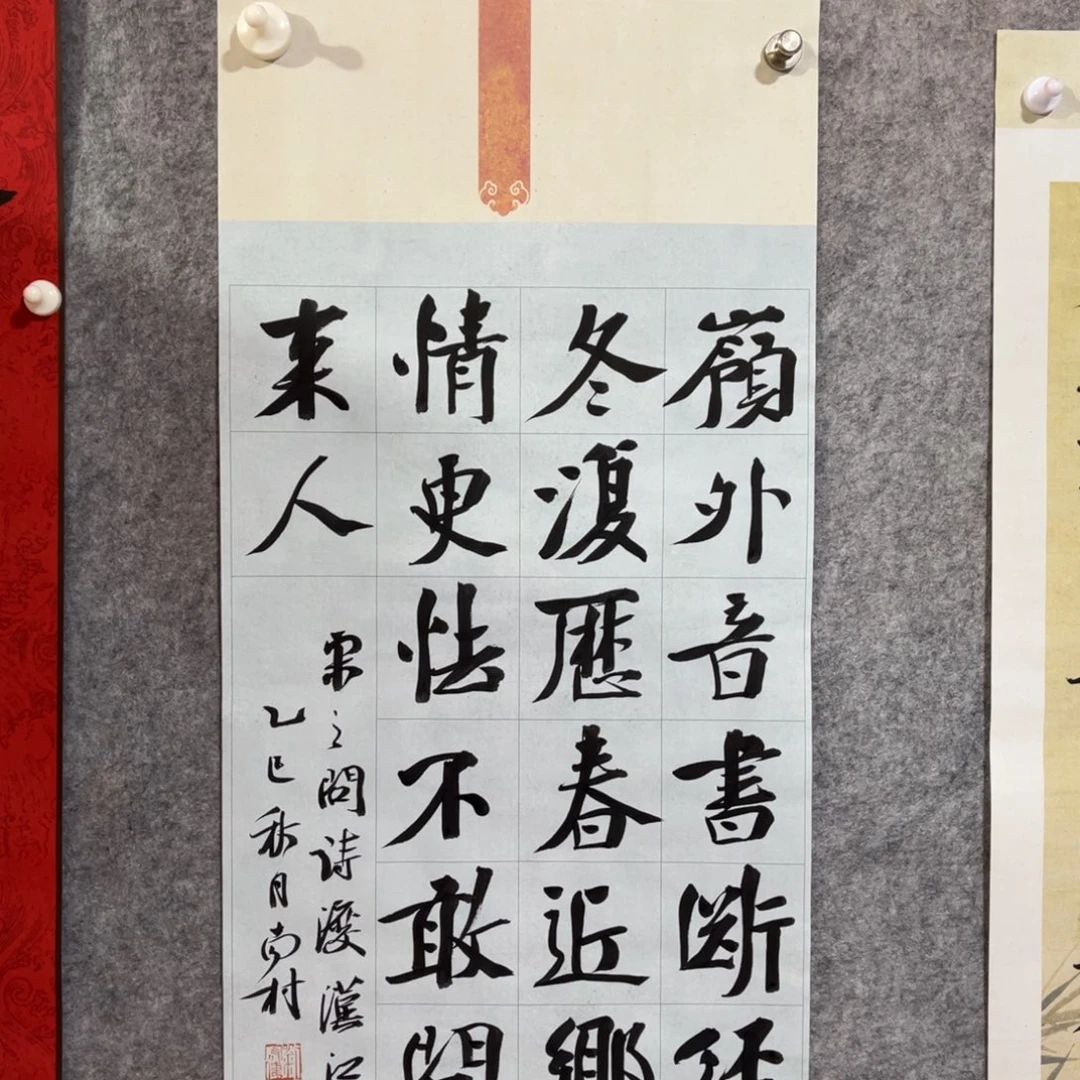 嶺外音書断經
冬復歷春近鄉
情更怯不敢問
来人
宋之問詩渡漢江
乙巳秋月南村